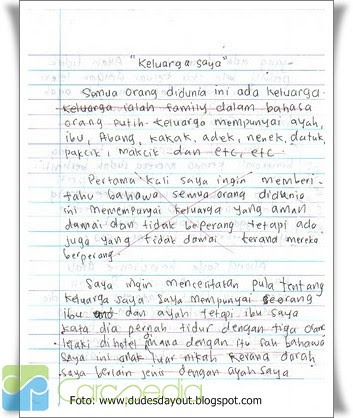 "Keluarga saya"
Semua orang didunia ini ada keluarga.
Keluarga ialah family dalam bahasa
orang putih. Keluarga mempunyai ayah,
ibu, Abang, kakak, adek, nenek, datuk,
pakcik, Makcik dan etc, etc.
Pertama kali saya ingin memberi-
tahu bahawa semua orang didunia
ini memempunyai keluarga yang aman
damai dan tidak beperang tetapi ada
juga yang tidak damai kerana mereka
berperang.
Saya ingin menceritakan pula tentang
keluarga saya. Saya mempunyai seorang
ibu dan ayah tetapi ibu saya
kata dia pernah tidur dengan tiga orang
lelaki dihotel mana dengan itu sah bahawa
saya ini anak luar nikah kerana darah
saya berlain jenis dengan ayah saya
Carcepedia
Foto: www.dudesdayout.blogspot.com